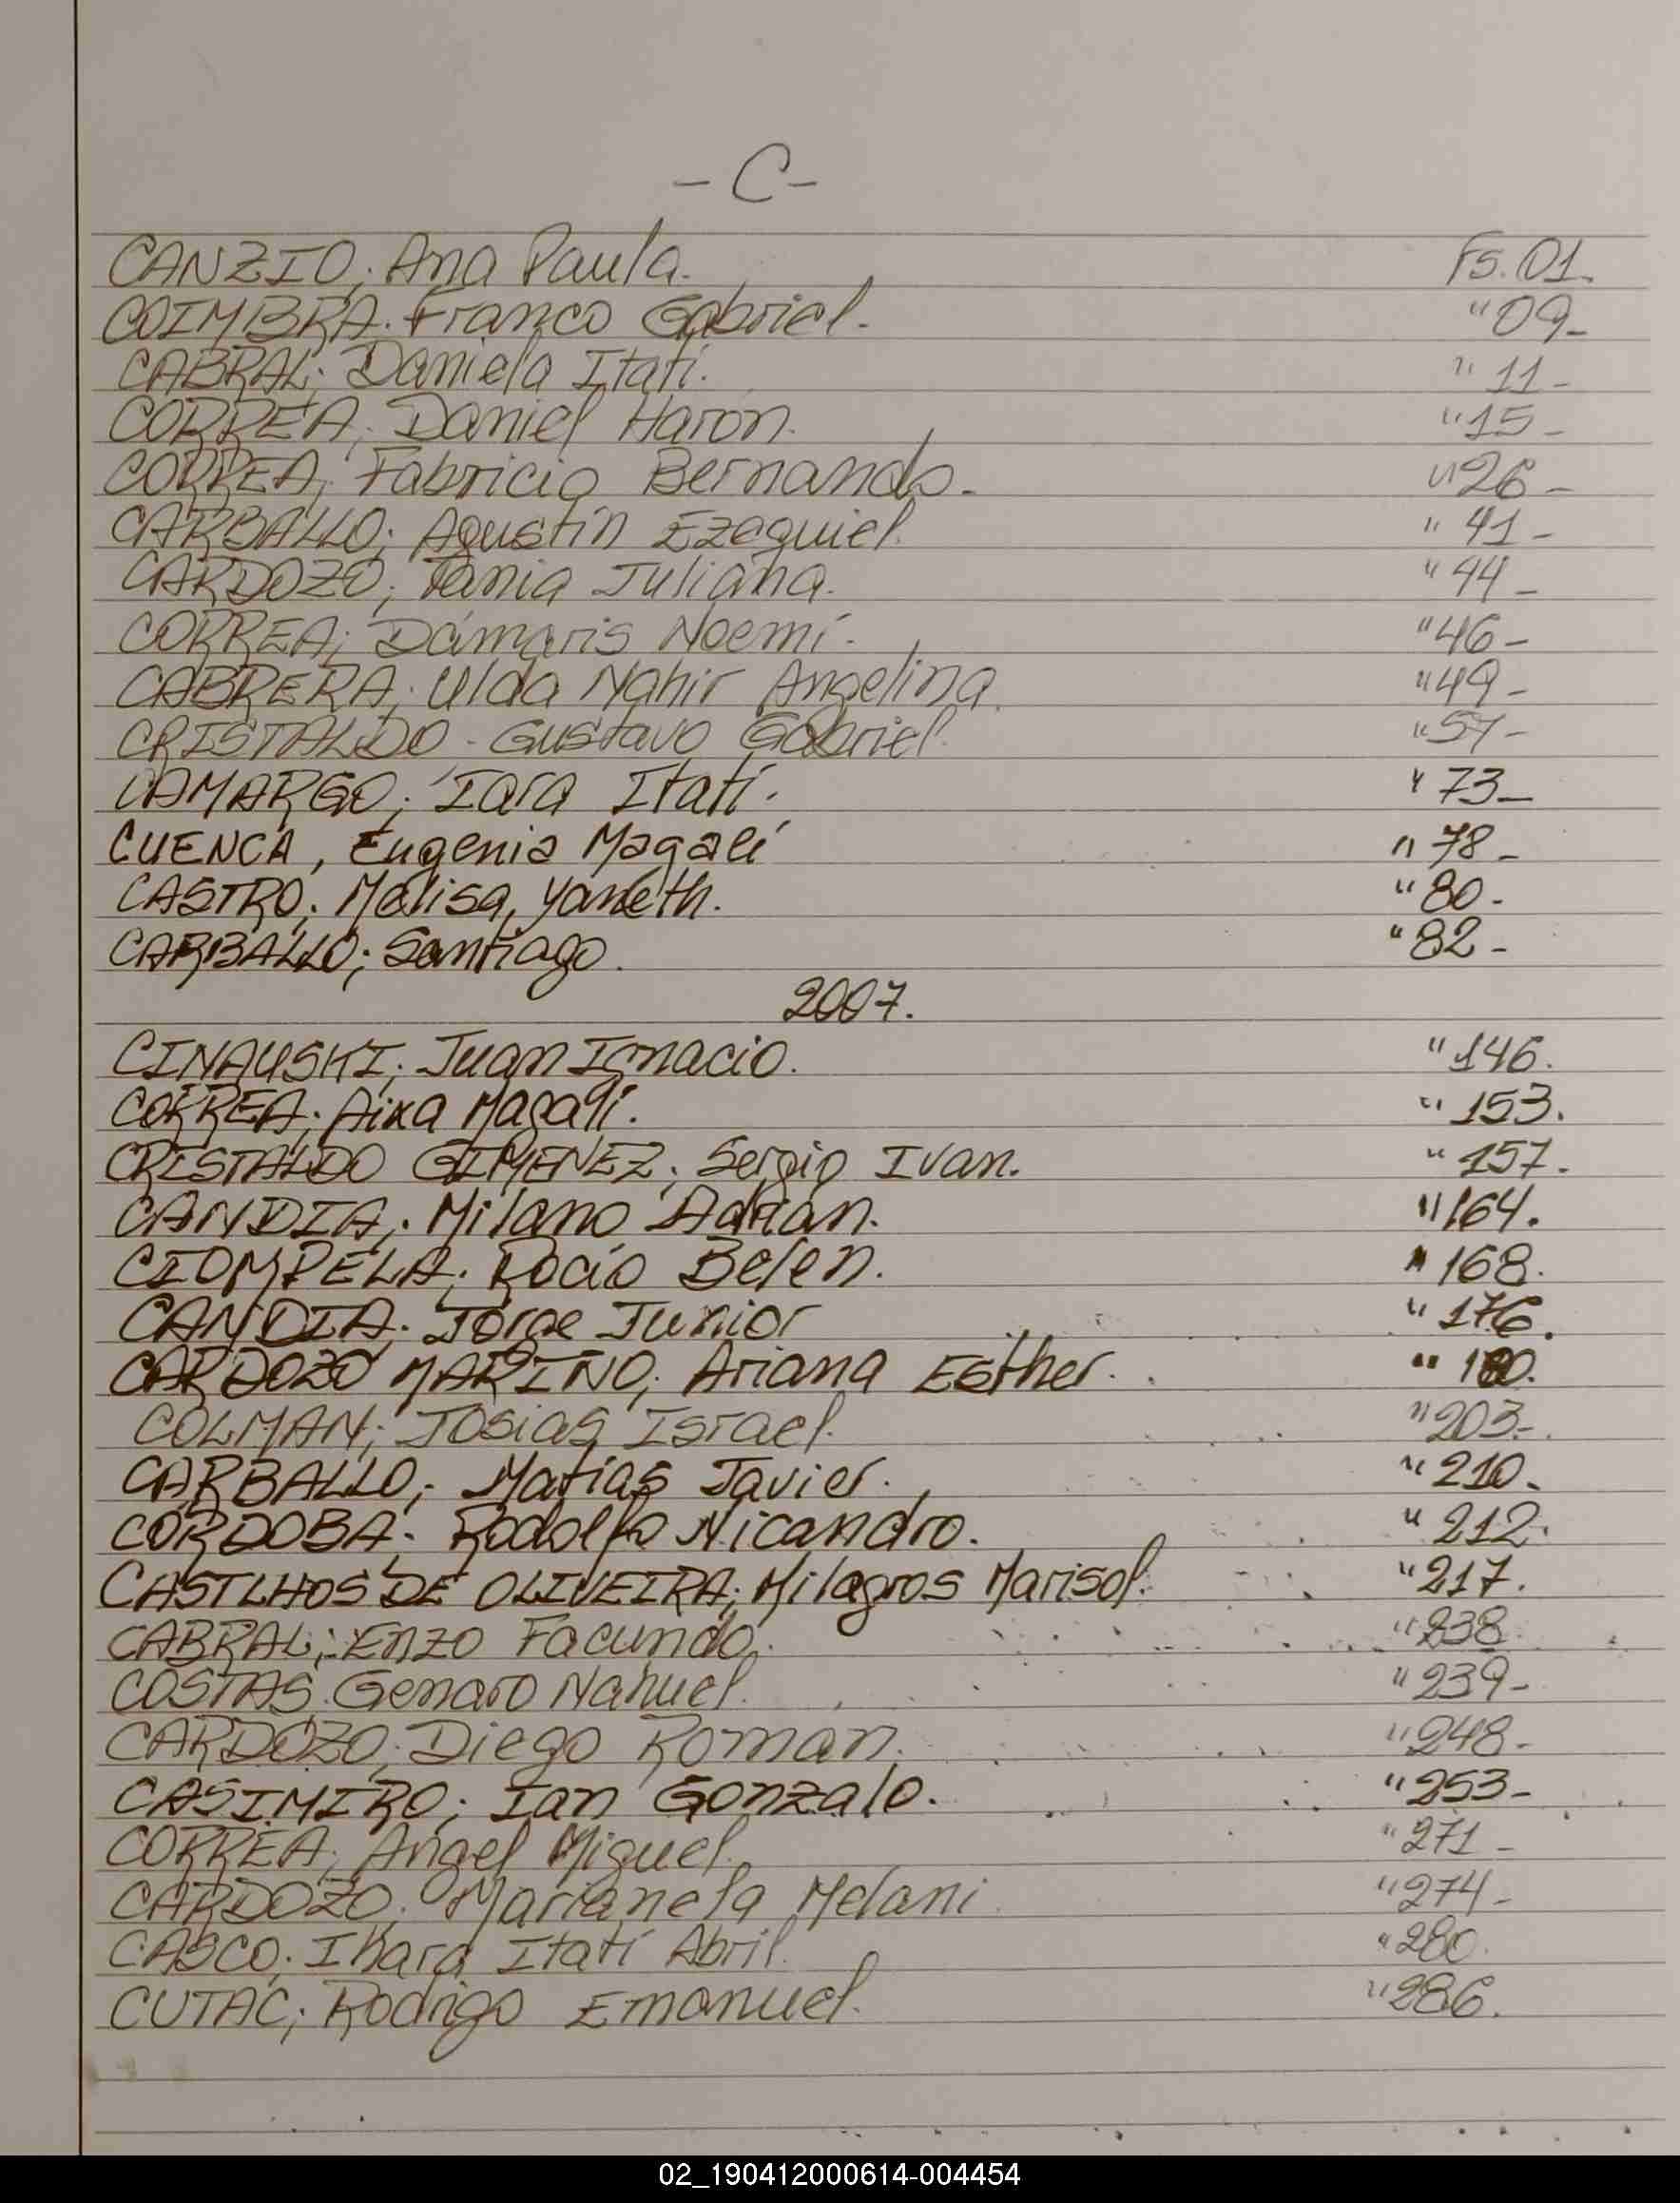 - C -
CANZIO; Ana Paula. Fs. 01.
COIMBRA. Franco Gabriel. " 09-
CABRAL; Daniela Itatí. " 11-
CORREA; Daniel Haron. " 15-
CORREA; Fabricio Bernando. " 26-
CARBALLO; Agustín Ezequiel. " 41-
CARDOZO; Tania Juliana. " 44-
CORREA; Dámaris Noemí. " 46-
CABRERA; Ulda Nahir Angelina. " 49-
CRISTALDO - Gustavo Gabriel. " 57-
CAMARGO; Iara Itatí. " 73-
CUENCA, Eugenia Magalí " 78-
CASTRO; Melisa, Yaneth. " 80-
CARBALLO; Santiago. " 82-
2007.
CINAUSKI; Juan Ignacio. " 146.
CORREA; Aixa Magalí. " 153.
CRISTALDO GIMENEZ; Sergio Ivan. " 157.
CANDIA; Milano Adrián. " 164.
CIOMPELA; Rocío Belen. " 168.
CANDIA; Jorge Junior " 176.
CARDOZO MARINO; Ariana Esther.
COLMAN; Josias Israel. " 203-.
CARBALLO; Matías Javier. " 210.
CORDOBA; Rodolfo Nicandro. " 212.
CASTLHOS DE OLIVEIRA; Milagros Marisol. " 217.
CABRAL; Enzo Facundo. " 238.
COSTAS. Genaro Nahuel. " 239-
CARDOZO; Diego Roman. " 248-
CASIMIRO; Ian Gonzalo. " 253-
CORREA; Angel Miguel. " 271-
CARDOZO; Marianela Melani. " 274-
CASCO; Ihara Itatí Abril. " 280.
CUTAC; Rodrigo Emanuel. " 286.
02_190412000614-004454